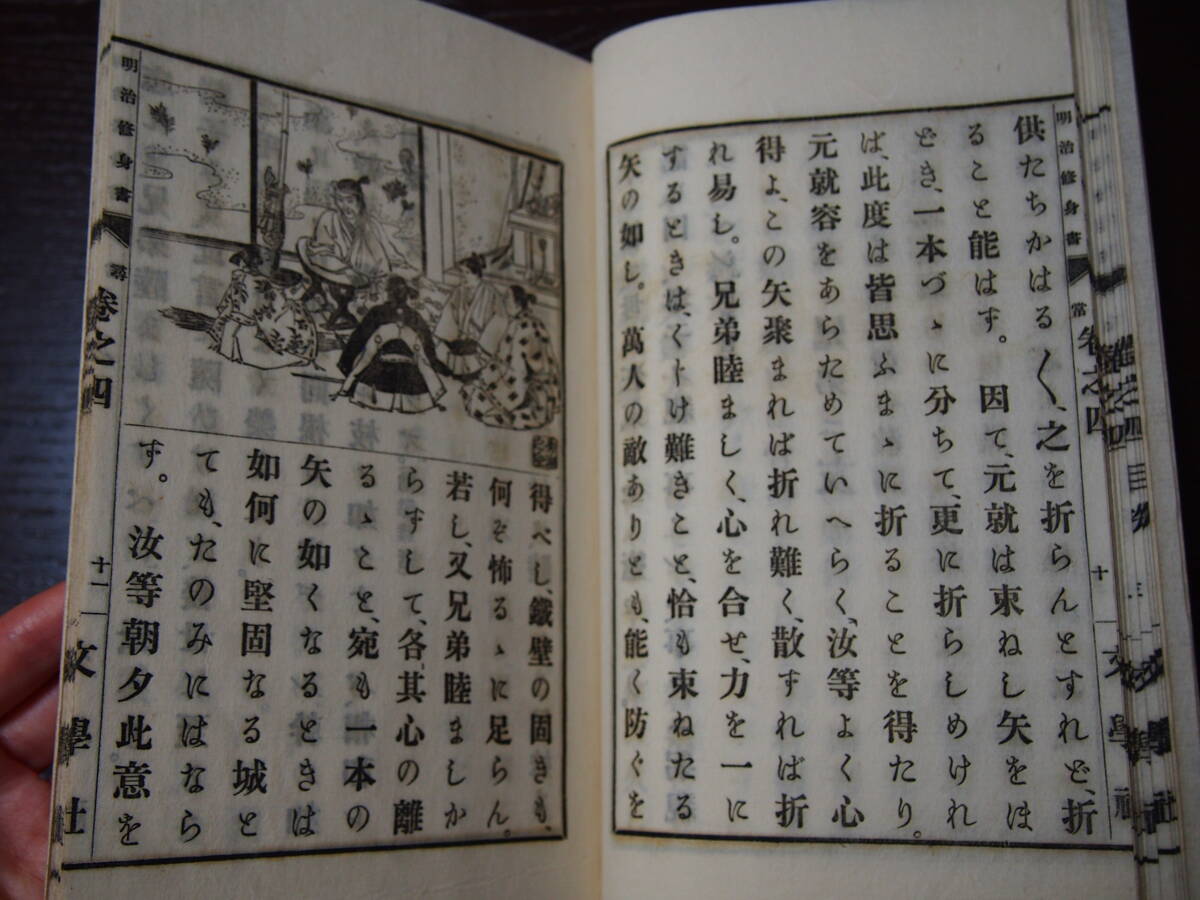 明治修身書
尋常
卷之四
十
文學社
供たちかはる〳〵、之を折らんとすれど、折
ること能はず。因て、元就は束ねし矢をほ
どき、一本づゝに分ちて、更に折らしめけれ
ば、此度は皆思ふまゝに折ることを得たり。
元就容をあらためていへらく、汝等よく心
得よ、この矢聚まれば折れ難く、散ずれば折
れ易し。兄弟睦ましく、心を合せ、力を一に
するときは、くじけ難きこと、恰も束ねたる
矢の如し。萬人の敵ありとも、能く防ぐを
得べし、鐵壁の固きも、
何ぞ怖るゝに足らん。
若し、又兄弟睦ましか
らずして、各、其心の離
るゝこと、宛も一本の
矢の如くなるときは
如何に堅固なる城と
ても、たのみにはなら
ず。汝等朝夕此意を
明治修身書
尋
卷之四
十一
文學社